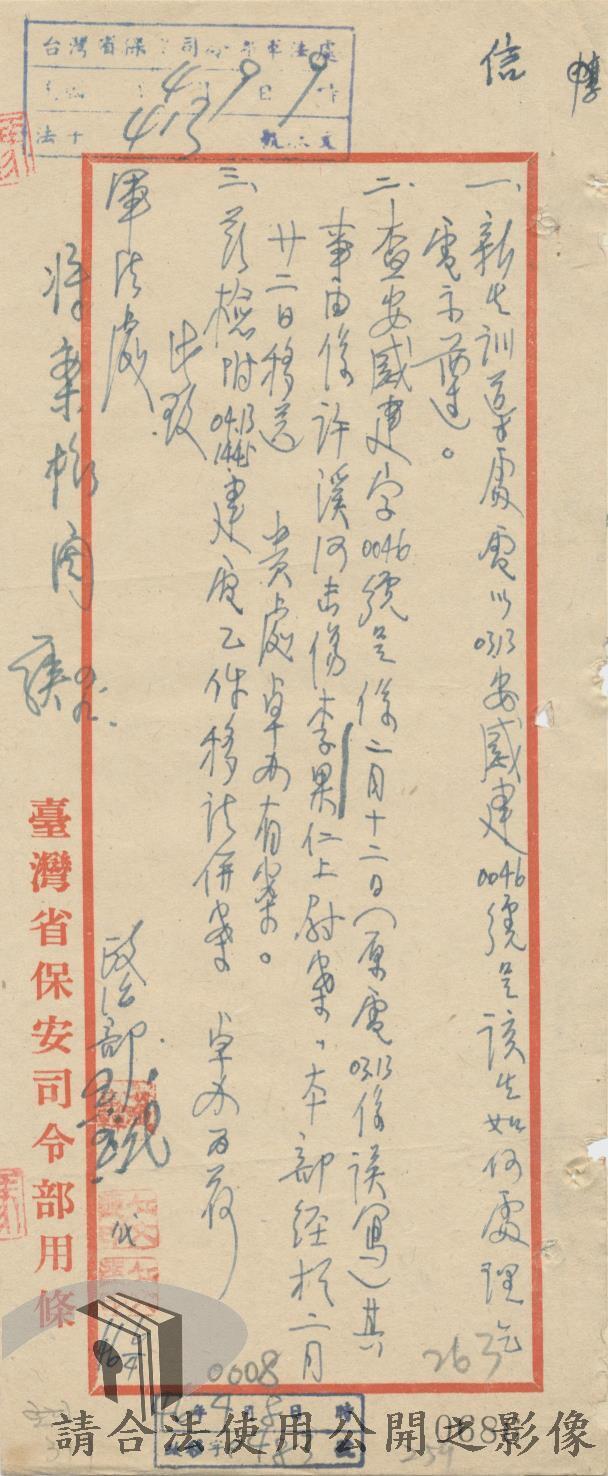 信
台灣省保安司令部軍法處
一、新生訓導處電以0313安感建0046號呈該生如何處理乞
電示遵。
二、查安感建字0046號呈係二月十二日(原電0313係誤寫)其
事由係許溪河击傷李果仁上尉案,本部經於二月
廿二日移送 貴處卓办有案。
三、茲檢附0413 1445建電乙件移請併案 卓办為荷
此致
軍法處
政治部
代
將案檢閱
臺灣省保安司令部用條
263
0608
請合法使用公開之影像